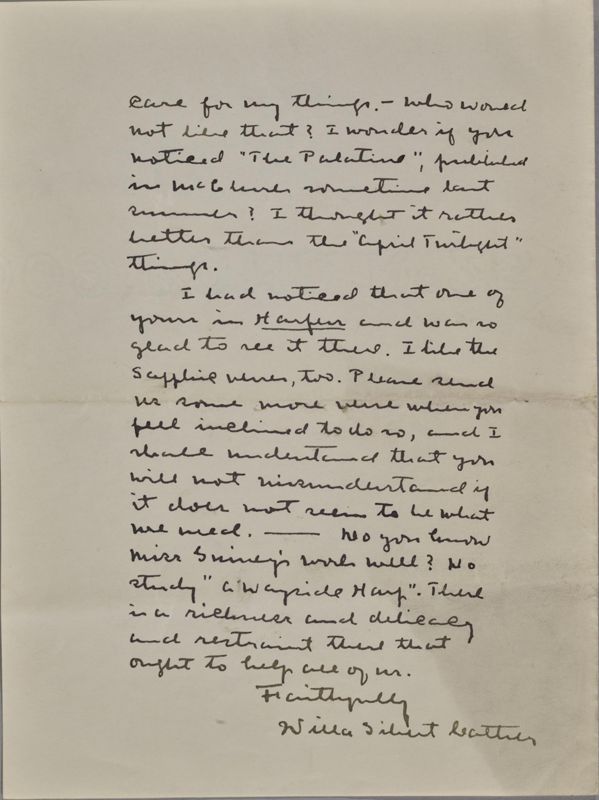 care for my things. – Who would
not like that? I wonder if you
noticed "The Palatine", published
in McClures sometime last
summer? I thought it rather
better than the "April Twilight"
things.
I had noticed that one of
yours in Harpers and was so
glad to see it there. I like the
Sapphic verses, too. Please send
us some more verse when you
feel inclined to do so, and I
shall understand that you
will not misunderstand if
it does not seem to be what
we need. — Do you know
Miss Guiney's work well? Do
study "A Wayside Harp". There
is a richness and delicacy
and restraint there that
ought to help all of us.
Faithfully
Willa Sibert Cather